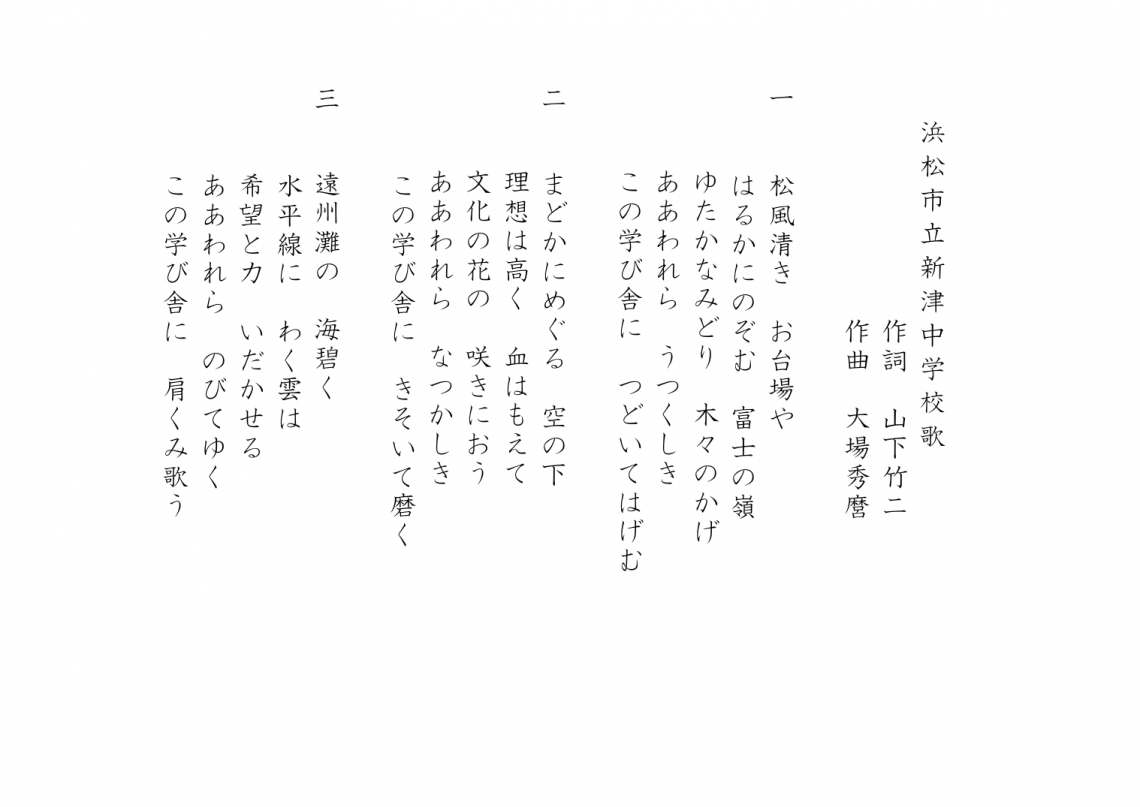 浜松市立新津中学校歌
作詞　山下竹二
作曲　大場秀麿
一　松風清き　お台場や
はるかにのぞむ　富士の嶺
ゆたかなみどり　木々のかげ
ああわれら　うつくしき
この学び舎に　つどいてはげむ
二　まどかにめぐる　空の下
理想は高く　血はもえて
文化の花の　咲きにおう
ああわれら　なつかしき
この学び舎に　きそいて磨く
三　遠州灘の　海碧く
水平線に　わく雲は
希望と力　いだかせる
ああわれら　のびてゆく
この学び舎に　肩くみ歌う